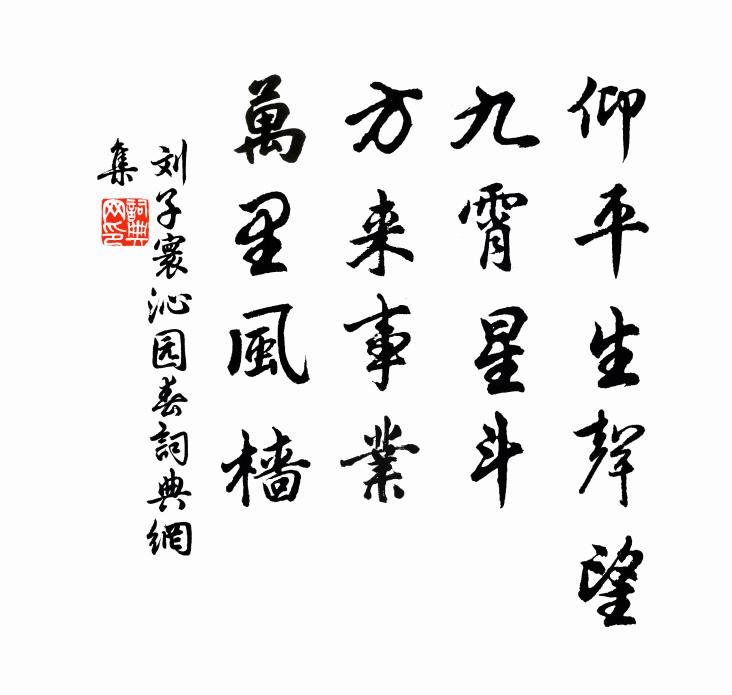 仰平生聲望
九霄星斗
方来事業
萬里風檣
刘子寰沁园春詞典網
集
詞典网印